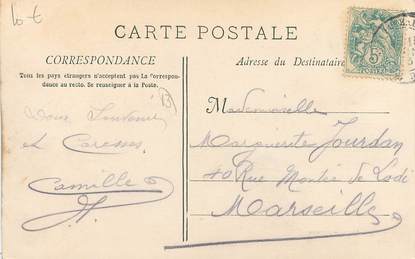 CARTE POSTALE
CORRESPONDANCE
Tous les pays étrangers n'acceptent pas la Correspon-
dance au recto. Se renseigner à la Poste.
Adresse du Destinataire
5c
POSTES
Doux Souvenir
et Caresses
Camille
Mademoiselle
Marguerite Jourdan
40 Rue Montée de Lodi
Marseille